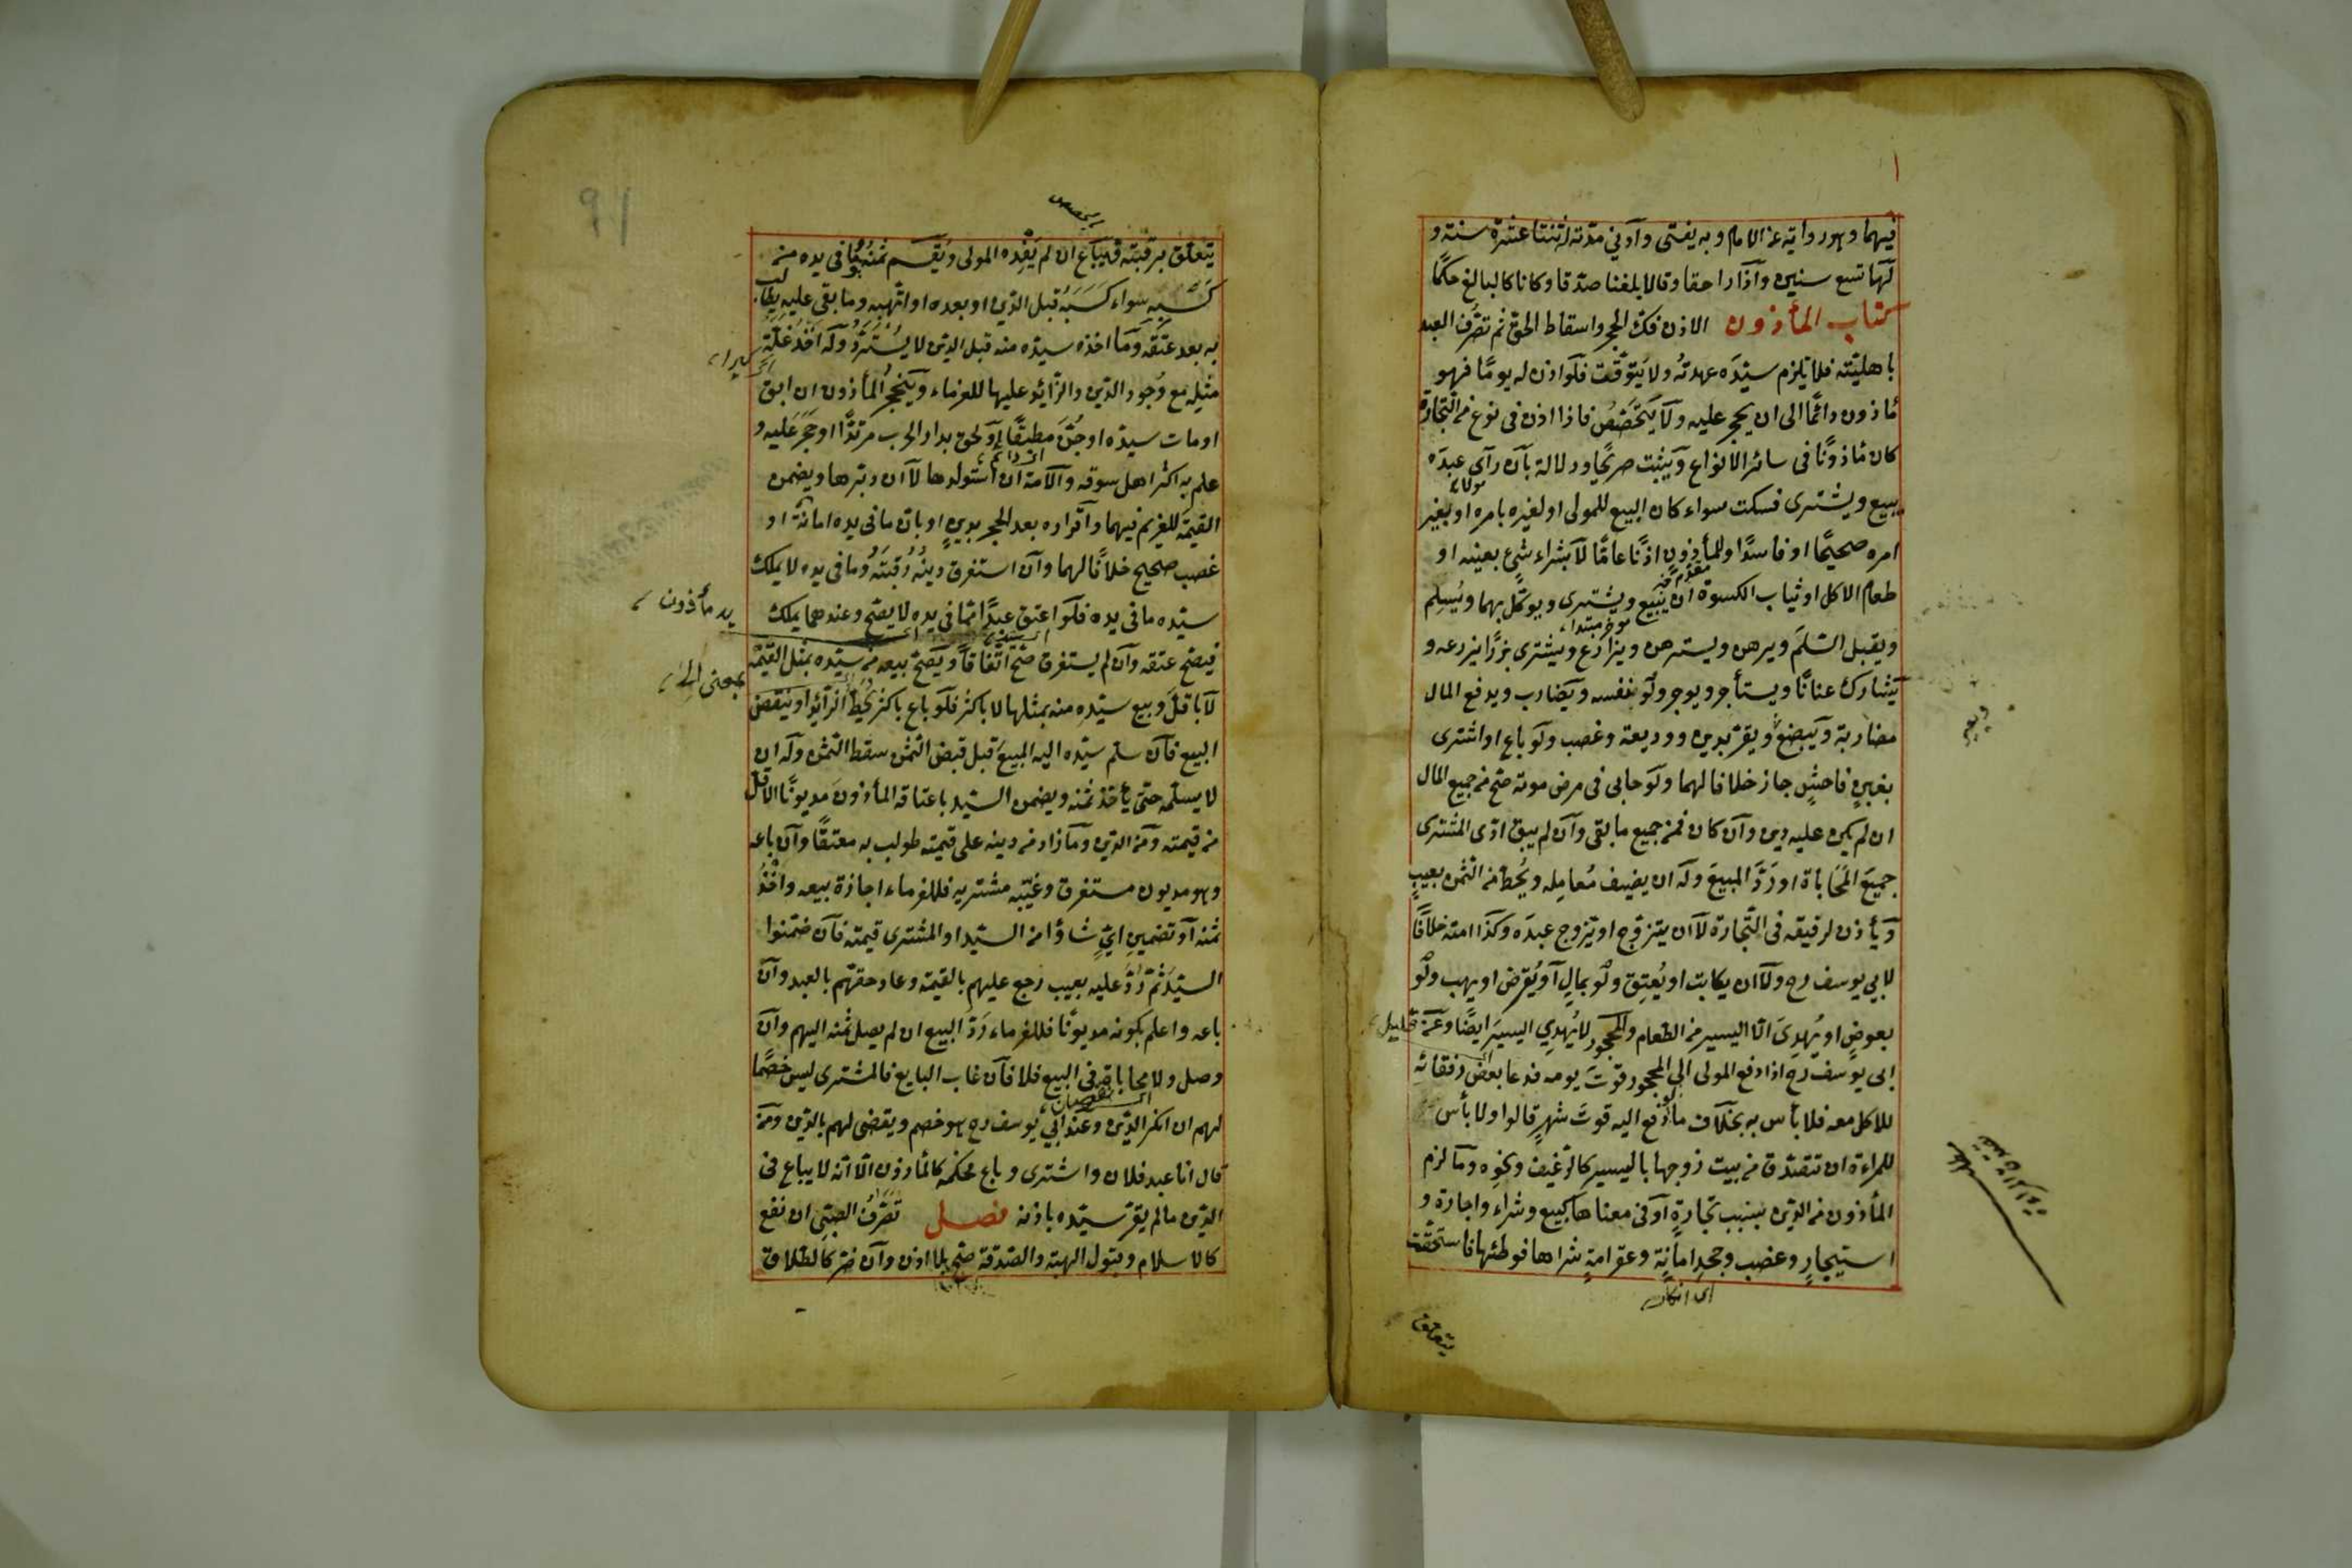 فيهما وهو رواية عن الامام وبه يفتى وادنى مدته له اثنتا عشرة سنة و
لها تسع سنين واذا راهقا وقالا بلغنا صدقا وكانا كالبالغ حكما
كتاب المأذون الاذن فك الحجر واسقاط الحق ثم تصرف العبد
باهليته فلا يلزم سيده عهدته ولا يتوقت فلو اذن له يوما فهو
مأذون دائما الى ان يحجر عليه ولا يتخصص فاذا اذن فى نوع من التجارة
كان مأذونا فى سائر الانواع ويثبت صريحا ودلالة بان رآى عبده
يبيع ويشترى فسكت سواء كان البيع للمولى او لغيره بامره او بغير
امره صحيحا او فاسدا وللمأذون اذنا عاما لا بشراء شئ بعينه او
طعام الاكل او ثياب الكسوة ان يبيع ويشترى ويوكل بهما ويسلم
ويقبل السلم ويرهن ويسترهن ويزارع ويشترى بزرا يزرعه و
يشارك عنانا ويستأجر ويوجر ولو بنفسه ويضارب ويدفع المال
مضاربة ويبضع ويقر بدين ووديعة وغصب ولو باع او اشترى
بغبن فاحش جاز خلافا لهما ولو حابى فى مرض موته صح من جميع المال
ان لم يكن عليه دين وان كان فمن جميع ما بقى وان لم يبق ادى المشترى
جميع المحاباة او رد المبيع وله ان يضيف معامله ويحط من الثمن بعيب
ويأذن لرقيقه فى التجارة لا ان يتزوج او يزوج عبده وكذا امته خلافا
لابي يوسف رح ولا ان يكاتب او يعتق ولو بمال او يقرض او يهب ولو
بعوض او يهدى الا اليسير من الطعام والمحجور لا يهدي اليسير ايضا وعن
ابى يوسف رح اذا دفع المولى الى المحجور قوت يومه فدعا بعض رفقائه
للاكل معه فلا بأس به بخلاف ما لو دفع اليه قوت شهر قالوا ولا بأس
للمراءة ان تتصدق من بيت زوجها باليسير كالرغيف ونحوه وما لزم
المأذون من الدين بسبب تجارة او فى معناها كبيع وشراء واجارة و
استيجار وغصب وجحد امانة وعقر امة شراها فوطئها فاستحقت
اى انكار
يتعلق
قليل
91
يتعلق برقبته فيباع ان لم يفده المولى ويقسم ثمنه وما فى يده من
كسبه سواء كسبه قبل الدين او بعده او اتهبه وما بقى عليه يطالب
به بعد عتقه وما اخذه سيده منه قبل الدين لا يسترد وله اخذ غلة
مثله مع وجود الدين والزائد عليها للغرماء وينحجر المأذون ان ابق
او مات سيده او جن مطبقا او لحق بدار الحرب مرتدا او حجر عليه و
علم به اكثر اهل سوقه والامة ان استولدها لا ان دبرها ويضمن
القيمة للغريم فيهما واقراره بعد الحجر بدين او بان ما فى يده امانة او
غصب صحيح خلافا لهما وان استغرق دينه رقبته وما فى يده لا يملك
سيده ما فى يده فلو اعتق عبدا مما فى يده لا يصح وعندهما يملك
فيصح عتقه وان لم يستغرق صح اتفاقا ويصح بيعه من سيده بمثل القيمة
لا باقل وبيع سيده منه بمثلها لا باكثر فلو باع باكثر يحط الزائد او ينقض
البيع فان سلم سيده اليه المبيع قبل قبض الثمن سقط الثمن وله ان
لا يسلمه حتى يأخذ ثمنه ويضمن السيد باعتاقه المأذون مديونا الاقل
من قيمته ومن الدين وما زاد من دينه على قيمته طولب به معتقا وان باعه
وهو مديون مستغرق وغيبه مشتريه فللغرماء اجازة بيعه واخذ
ثمنه او تضمين اي شاؤا من السيد او المشترى قيمته فان ضمنوا
السيد ثم رد عليه بعيب رجع عليهم بالقيمة وعاد حقهم بالعبد وان
باعه واعلم بكونه مديونا فللغرماء رد البيع ان لم يصل ثمنه اليهم وان
وصل ولا محاباة فى البيع فلا فان غاب البايع فالمشترى ليس خصما
لهم ان انكر الدين وعند ابي يوسف رح هو خصم ويقضى لهم بالدين ومن
قال انا عبد فلان واشترى وباع فحكمه كالمأذون الا انه لا يباع فى
الدين ما لم يقر سيده باذنه فصل تصرف الصبى ان نفع
كالاسلام وقبول الهبة والصدقة صح بلا اذن وان ضر كالطلاق
يد مأذون
بمعنى الى